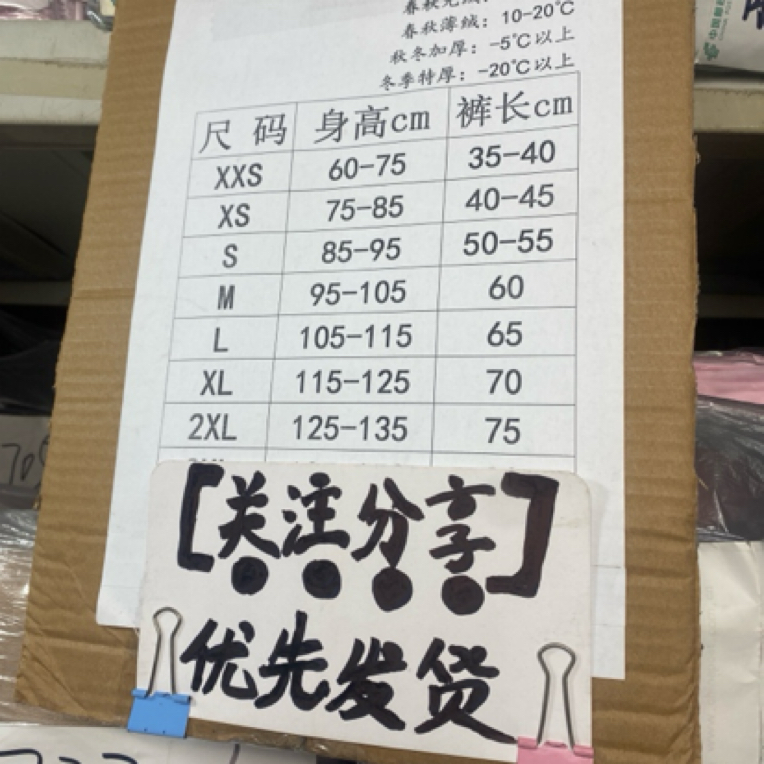 春秋薄绒：10-20℃
秋冬加厚：-5℃以上
冬季特厚：-20℃以上
尺 码 身高cm 裤长cm
XXS 60-75 35-40
XS 75-85 40-45
S 85-95 50-55
M 95-105 60
L 105-115 65
XL 115-125 70
2XL 125-135 75
[关注分享]
优先发货